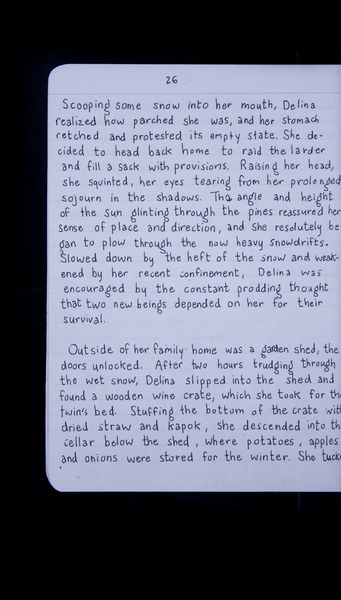 26
Scooping some snow into her mouth, Delina
realized how parched she was, and her stomach
retched and protested its empty state. She de-
cided to head back home to raid the larder
and fill a sack with provisions. Raising her head,
she squinted, her eyes tearing from her prolonged
sojourn in the shadows. The angle and height
of the sun glinting through the pines reassured her
sense of place and direction, and she resolutely be
gan to plow through the now heavy snowdrifts.
Slowed down by the heft of the snow and weak-
ened by her recent confinement, Delina was
encouraged by the constant prodding thought
that two new beings depended on her for their
survival.
Outside of her family home was a garden shed, the
doors unlocked. After two hours trudging through
the wet snow, Delina slipped into the shed and
found a wooden wine crate, which she took for the
twin's bed. Stuffing the bottom of the crate with
dried straw and kapok, she descended into th
cellar below the shed, where potatoes, apples
and onions were stored for the winter. She tuck